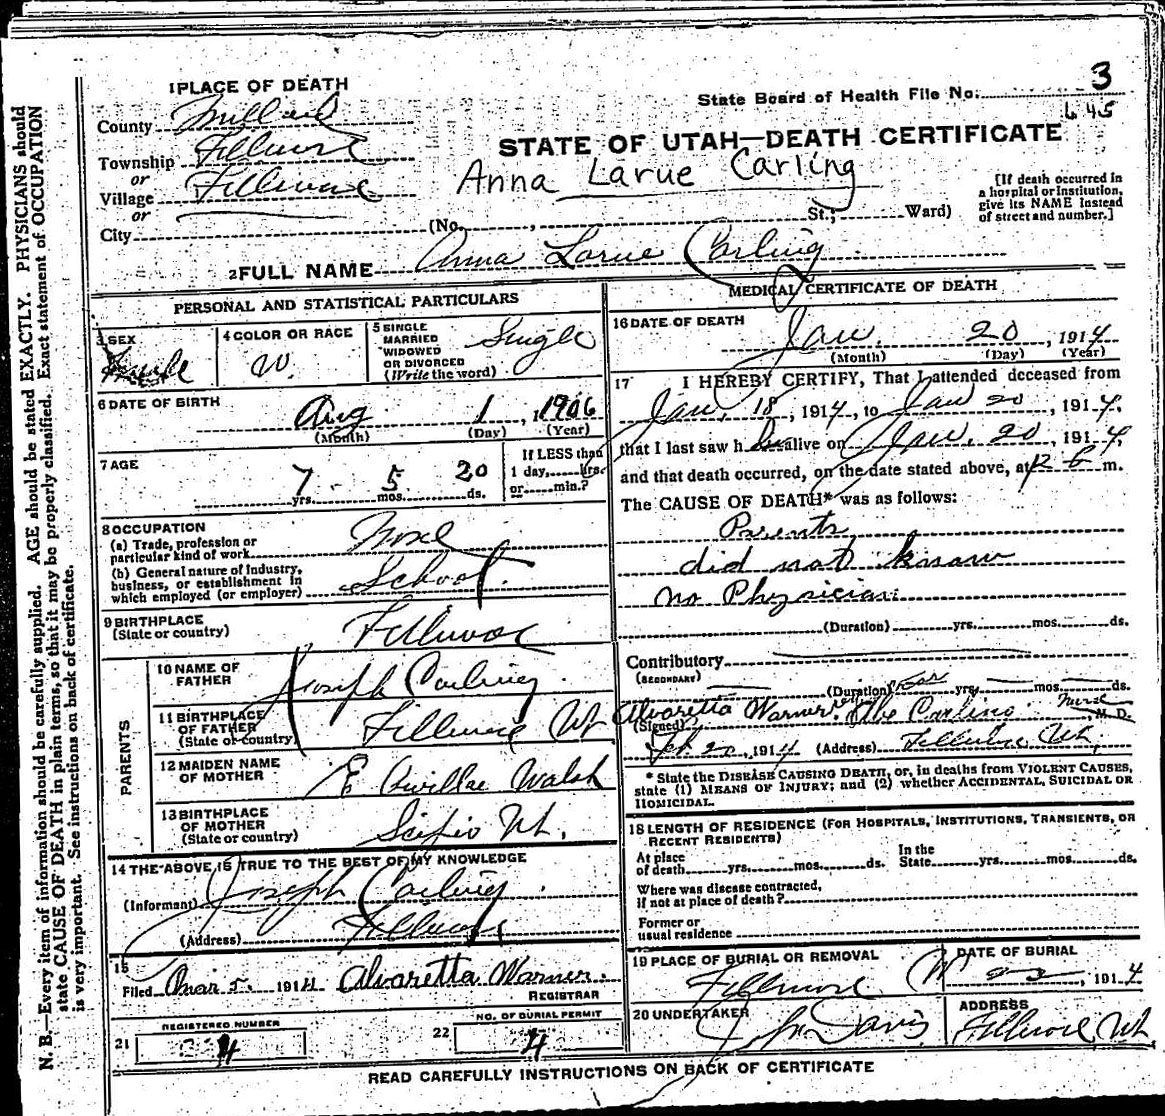 N. B.—Every item of information should be carefully supplied. AGE should be stated EXACTLY. PHYSICIANS should
state CAUSE OF DEATH in plain terms, so that it may be properly classified. Exact statement of OCCUPATION
is very important. See instructions on back of certificate.
1 PLACE OF DEATH
County Millard
Township Fillmore
or
Village Fillmore
or
City
State Board of Health File No. 3
645
STATE OF UTAH—DEATH CERTIFICATE
Anna Larue Carling
(No. , St.; Ward)
[If death occurred in
a hospital or institution,
give its NAME instead
of street and number.]
2 FULL NAME Anna Larue Carling
PERSONAL AND STATISTICAL PARTICULARS
3 SEX
Female
4 COLOR OR RACE
W.
5 SINGLE
MARRIED
WIDOWED
OR DIVORCED
(Write the word)
Single
6 DATE OF BIRTH
Aug 1, 1906
(Month) (Day) (Year)
7 AGE
7 yrs. 5 mos. 20 ds.
If LESS than
1 day, hrs.
or min.?
8 OCCUPATION
(a) Trade, profession or
particular kind of work
(b) General nature of industry,
business, or establishment in
which employed (or employer)
School
9 BIRTHPLACE
(State or country)
Fillmore
PARENTS
10 NAME OF
FATHER
Joseph Carling
11 BIRTHPLACE
OF FATHER
(State or country)
Fillmore Ut
12 MAIDEN NAME
OF MOTHER
E Walsh
13 BIRTHPLACE
OF MOTHER
(State or country)
Scipio Ut.
14 THE ABOVE IS TRUE TO THE BEST OF MY KNOWLEDGE
(Informant) Joseph Carling
(Address) Fillmore
15
Filed Mar 5, 1914 Alvaretta Warner.
REGISTRAR
REGISTERED NUMBER
21 4
NO. OF BURIAL PERMIT
22 4
MEDICAL CERTIFICATE OF DEATH
16 DATE OF DEATH
Jan. 20, 1914
(Month) (Day) (Year)
17 I HEREBY CERTIFY, That I attended deceased from
Jan. 18, 1914, to Jan 20, 1914,
that I last saw h alive on Jan. 20, 1914,
and that death occurred, on the date stated above, at m.
The CAUSE OF DEATH* was as follows:
Parents
did not know
no Physician
(Duration) yrs. mos. ds.
Contributory
(SECONDARY)
(Duration) yrs. mos. ds.
(Signed) Alvaretta Warner Carling Nurse M. D.
20, 1914 (Address) Fillmore Ut.
* State the DISEASE CAUSING DEATH, or, in deaths from VIOLENT CAUSES,
state (1) MEANS OF INJURY; and (2) whether ACCIDENTAL, SUICIDAL OR
HOMICIDAL.
18 LENGTH OF RESIDENCE (FOR HOSPITALS, INSTITUTIONS, TRANSIENTS, OR
RECENT RESIDENTS)
At place
of death yrs. mos. ds.
In the
State yrs. mos. ds.
Where was disease contracted,
if not at place of death?
Former or
usual residence
19 PLACE OF BURIAL OR REMOVAL
Fillmore
DATE OF BURIAL
22, 1914
20 UNDERTAKER
Davis
ADDRESS
Fillmore Ut
READ CAREFULLY INSTRUCTIONS ON BACK OF CERTIFICATE